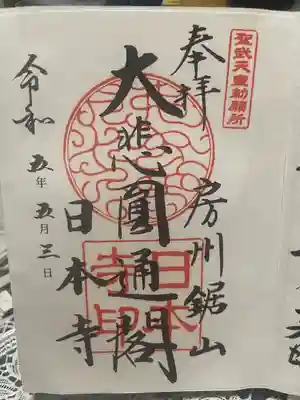 聖武天皇勅願所
奉拝
房州鋸山
大悲圓通閣
日本寺
令和五年五月三日
日本寺印